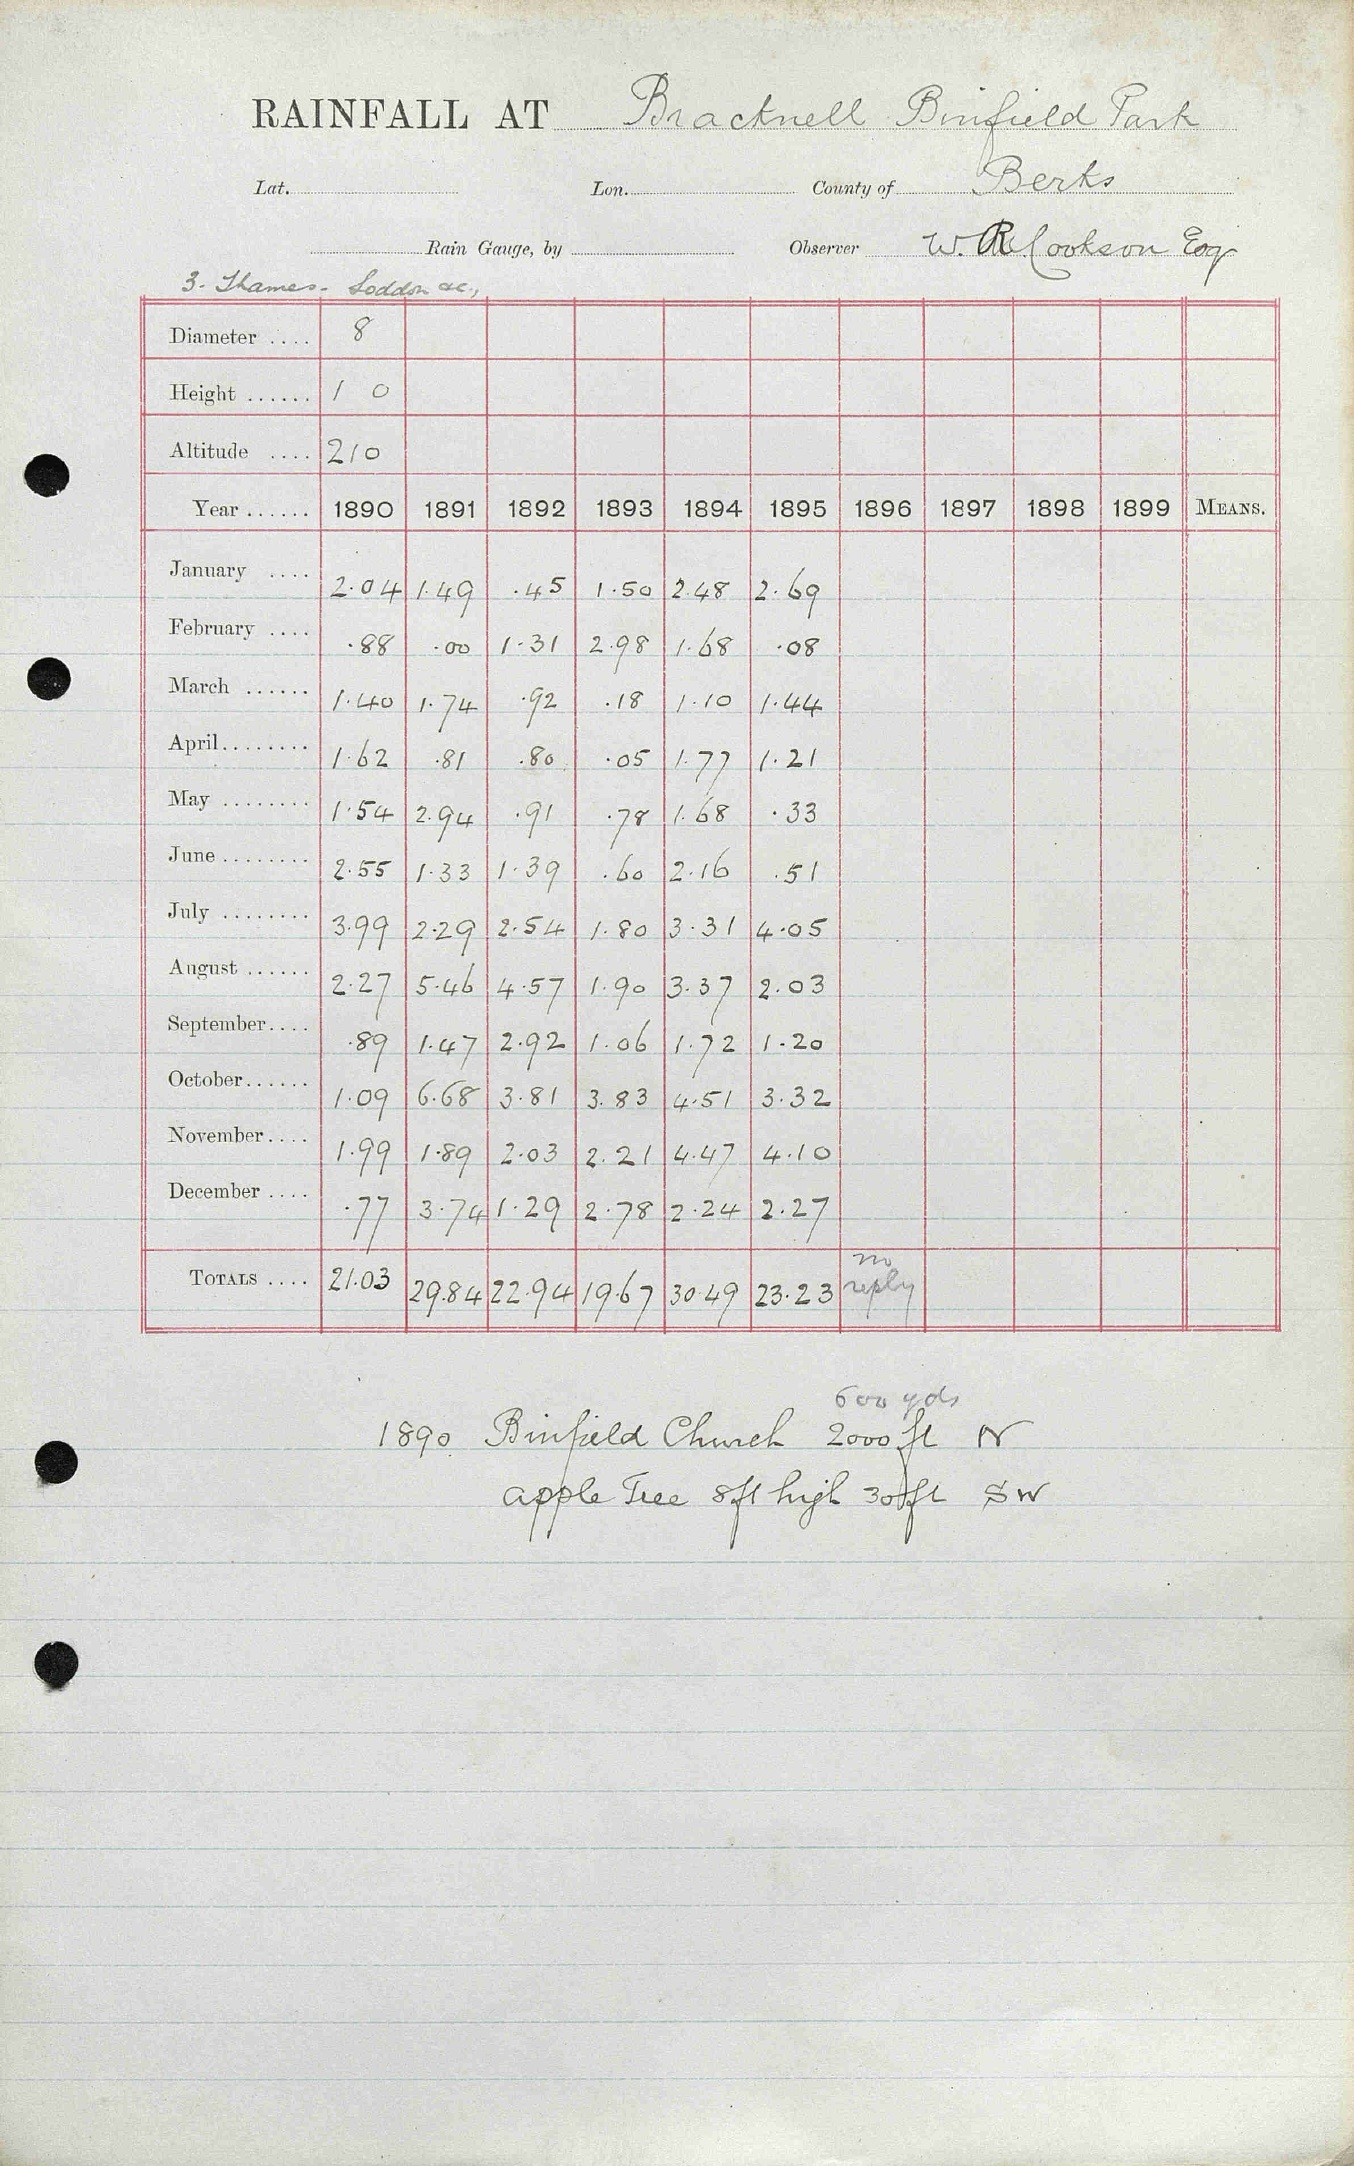 RAINFALL AT Bracknell Binfield Park
Lat. Lon. County of Berks
Rain Gauge, by Observer W. R. Cookson Esq
3. Thames - Loddon &c.,
Diameter .... 8
Height ...... 1 0
Altitude .... 210
Year ...... 1890 1891 1892 1893 1894 1895 1896 1897 1898 1899 MEANS.
January .... 2.04 1.49 .45 1.50 2.48 2.69
February .... .88 .00 1.31 2.98 1.68 .08
March ...... 1.40 1.74 .92 .18 1.10 1.44
April........ 1.62 .81 .80 .05 1.77 1.21
May ........ 1.54 2.94 .91 .78 1.68 .33
June ........ 2.55 1.33 1.39 .60 2.16 .51
July ........ 3.99 2.29 2.54 1.80 3.31 4.05
August ...... 2.27 5.46 4.57 1.90 3.37 2.03
September.... .89 1.47 2.92 1.06 1.72 1.20
October...... 1.09 6.68 3.81 3.83 4.51 3.32
November.... 1.99 1.89 2.03 2.21 4.47 4.10
December .... .77 3.74 1.29 2.78 2.24 2.27
TOTALS .... 21.03 29.84 22.94 19.67 30.49 23.23 no reply
600 yds
1890 Binfield Church 2000 ft N
apple Tree 8ft high 30 ft SW